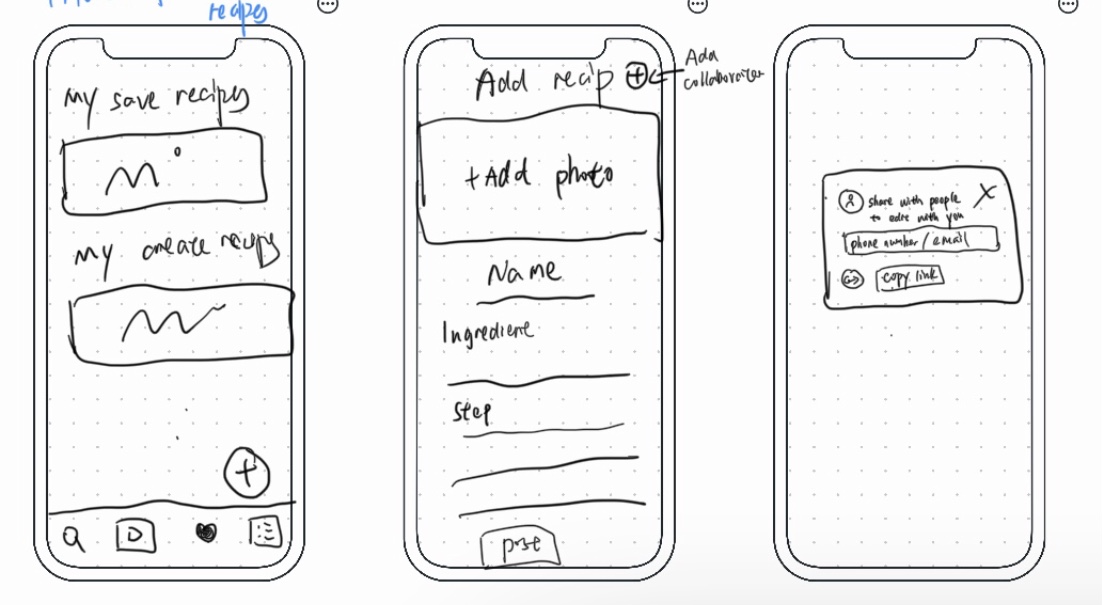 recipes
My save recipy
My create recipy
Add recip
Add
collaborater
+Add photo
Name
Ingredient
Step
post
share with people
to edit with you
X
phone number / email
copy link